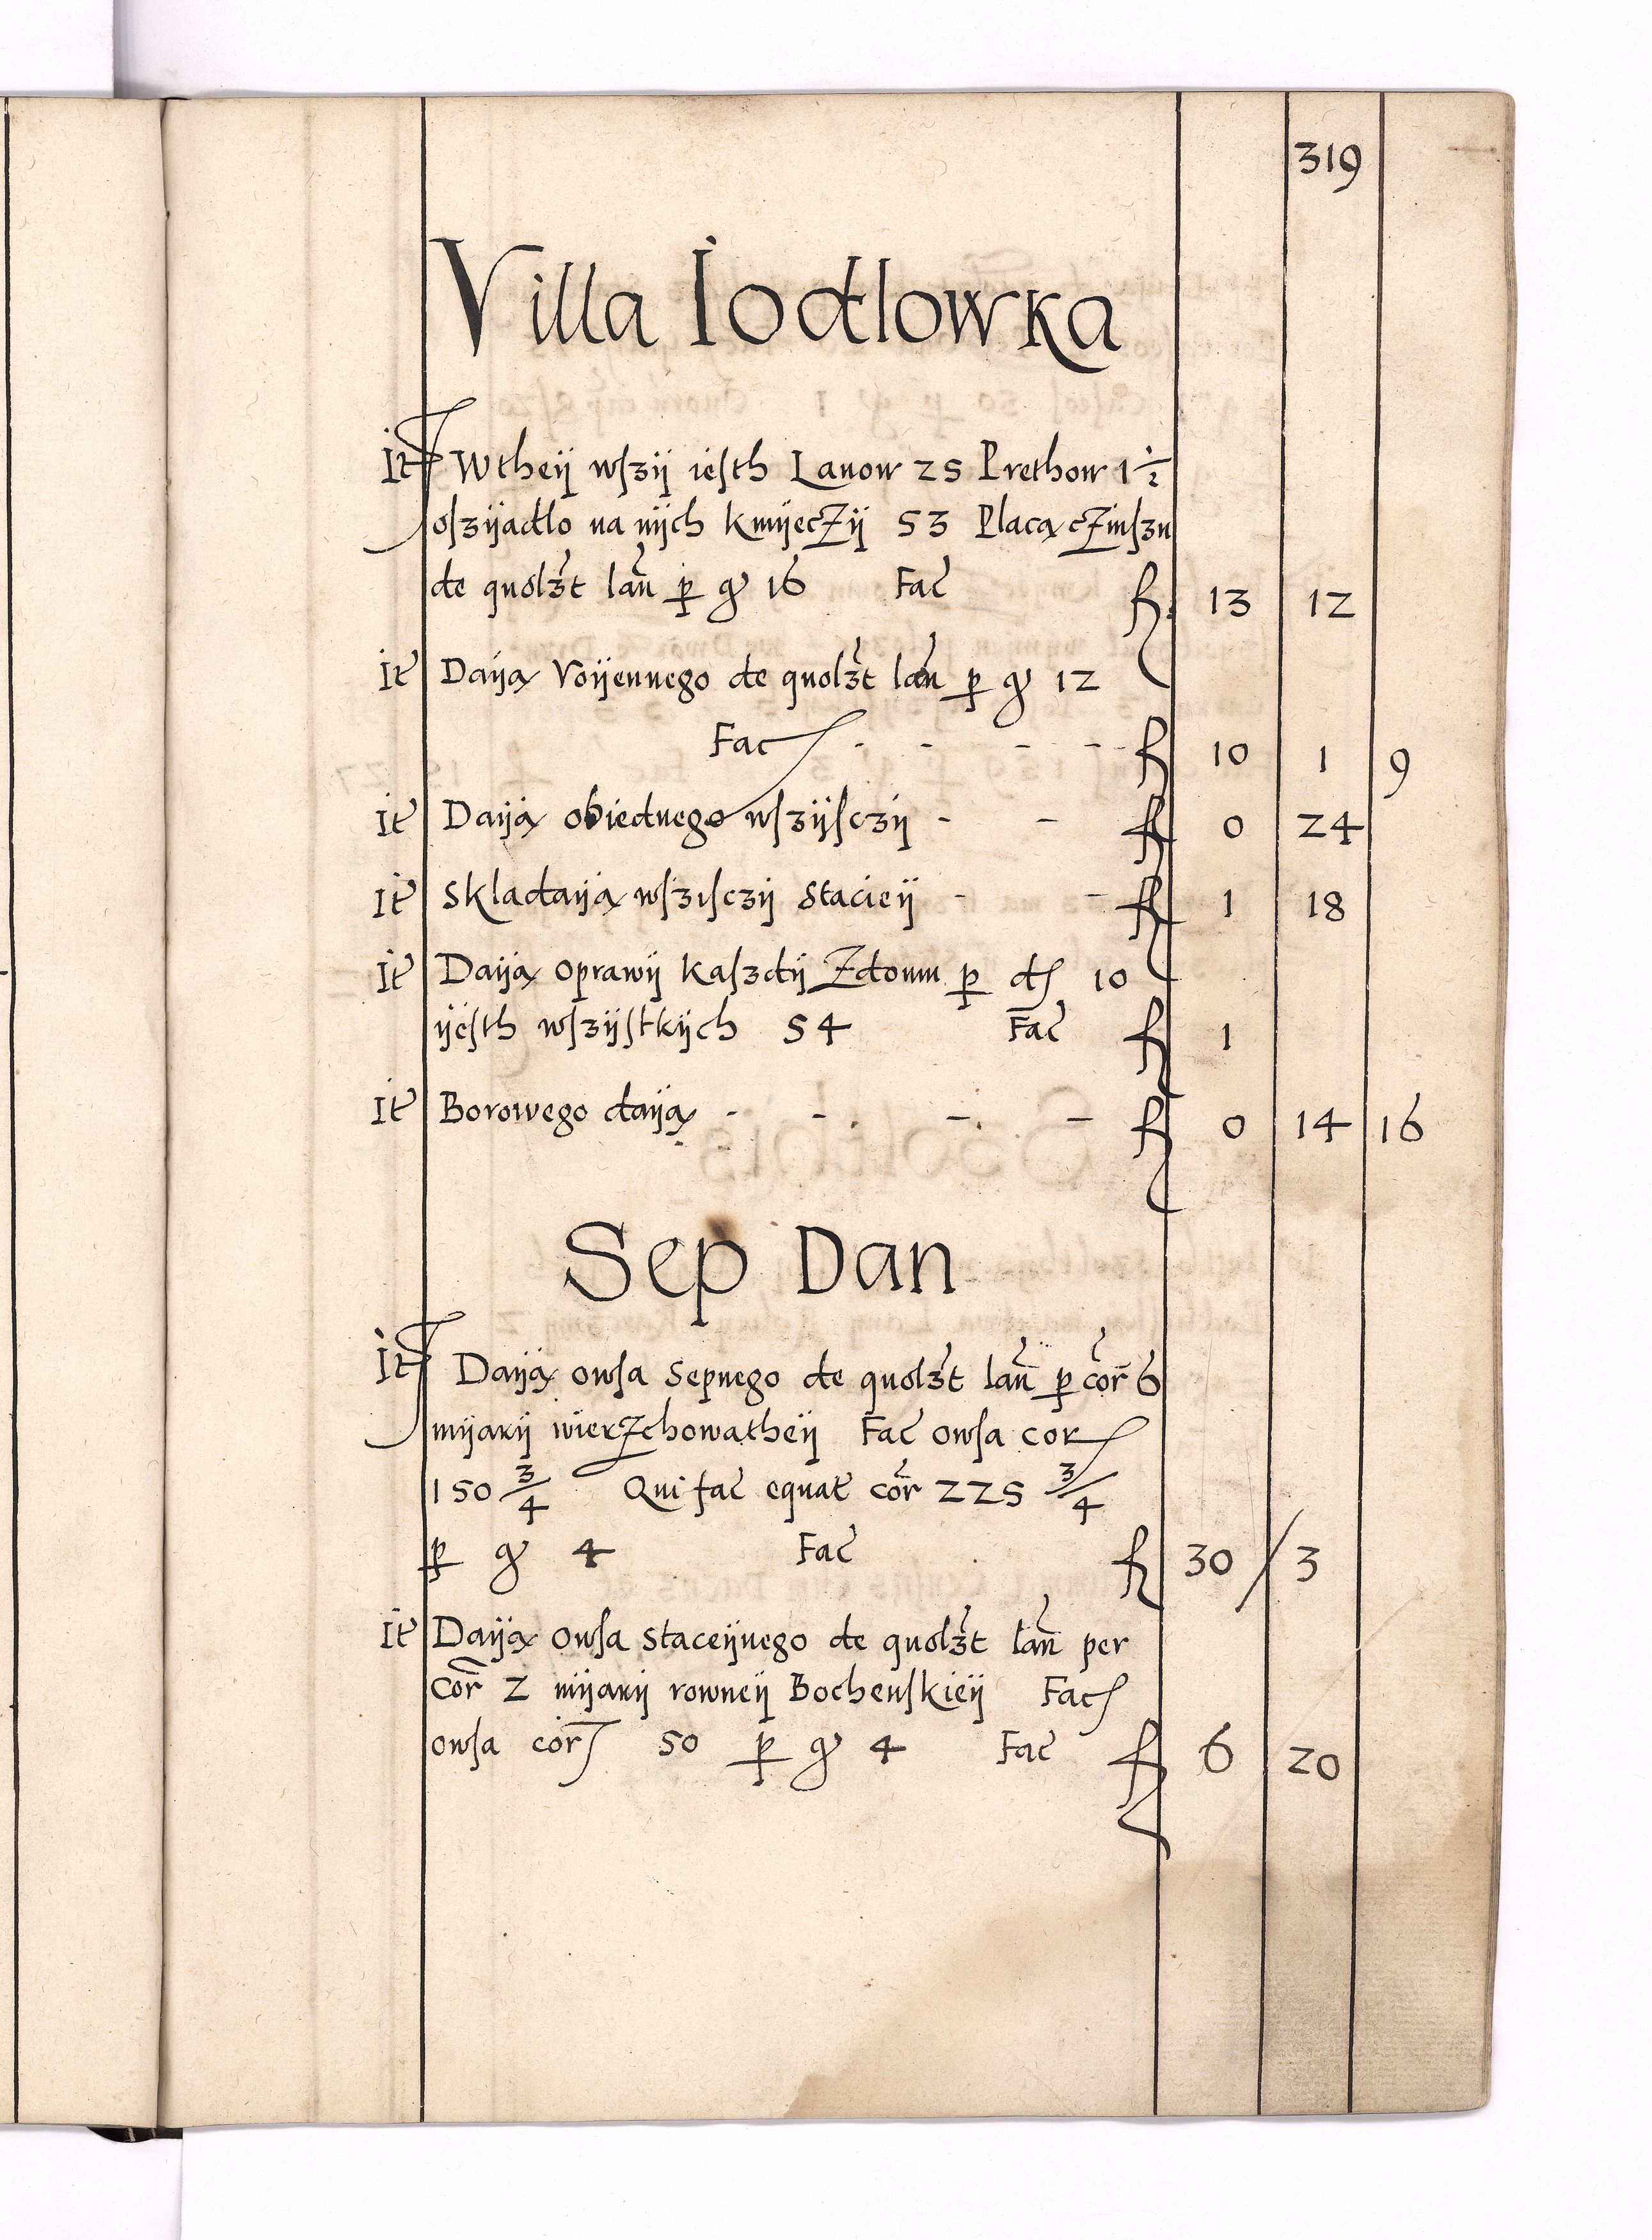 319
Villa Iodlowka
It Wtheÿ wſzÿ ieſth Lanow 25 Prethow 1 1/2
oſzÿadlo na nÿch KmÿecZÿ 53 Placą cZinſzu
de quolzt lan p gr 16 Fac f 13 12
It Daÿą Voÿennego de quolzt lan p gr 12
Fac - - - - f 10 1 9
It Daÿą obiednego wſzÿſczÿ - - f 0 24
It Skladaÿą wſzıſczÿ Stacieÿ - - f 1 18
It Daÿą oprawÿ Kaſzdÿ Zdomu p d 10
ÿeſth wſzÿſtkÿch 54 Fac f 1
It Borowego daÿą - - - - f 0 14 16
Sep Dan
It Daÿą owſa Sepnego de quolzt lan p cor 6
mÿarÿ wierZchowatheÿ Fac owſa cor
150 3/4 Qui fac equat cor 225 3/4
p gr 4 Fac f 30 / 3
It Daÿą owſa staceÿnego de quolzt lan per
Cor 2 mÿarÿ rowneÿ Bochenſkieÿ Fac
owſa cor 50 p gr 4 Fac f 6 20